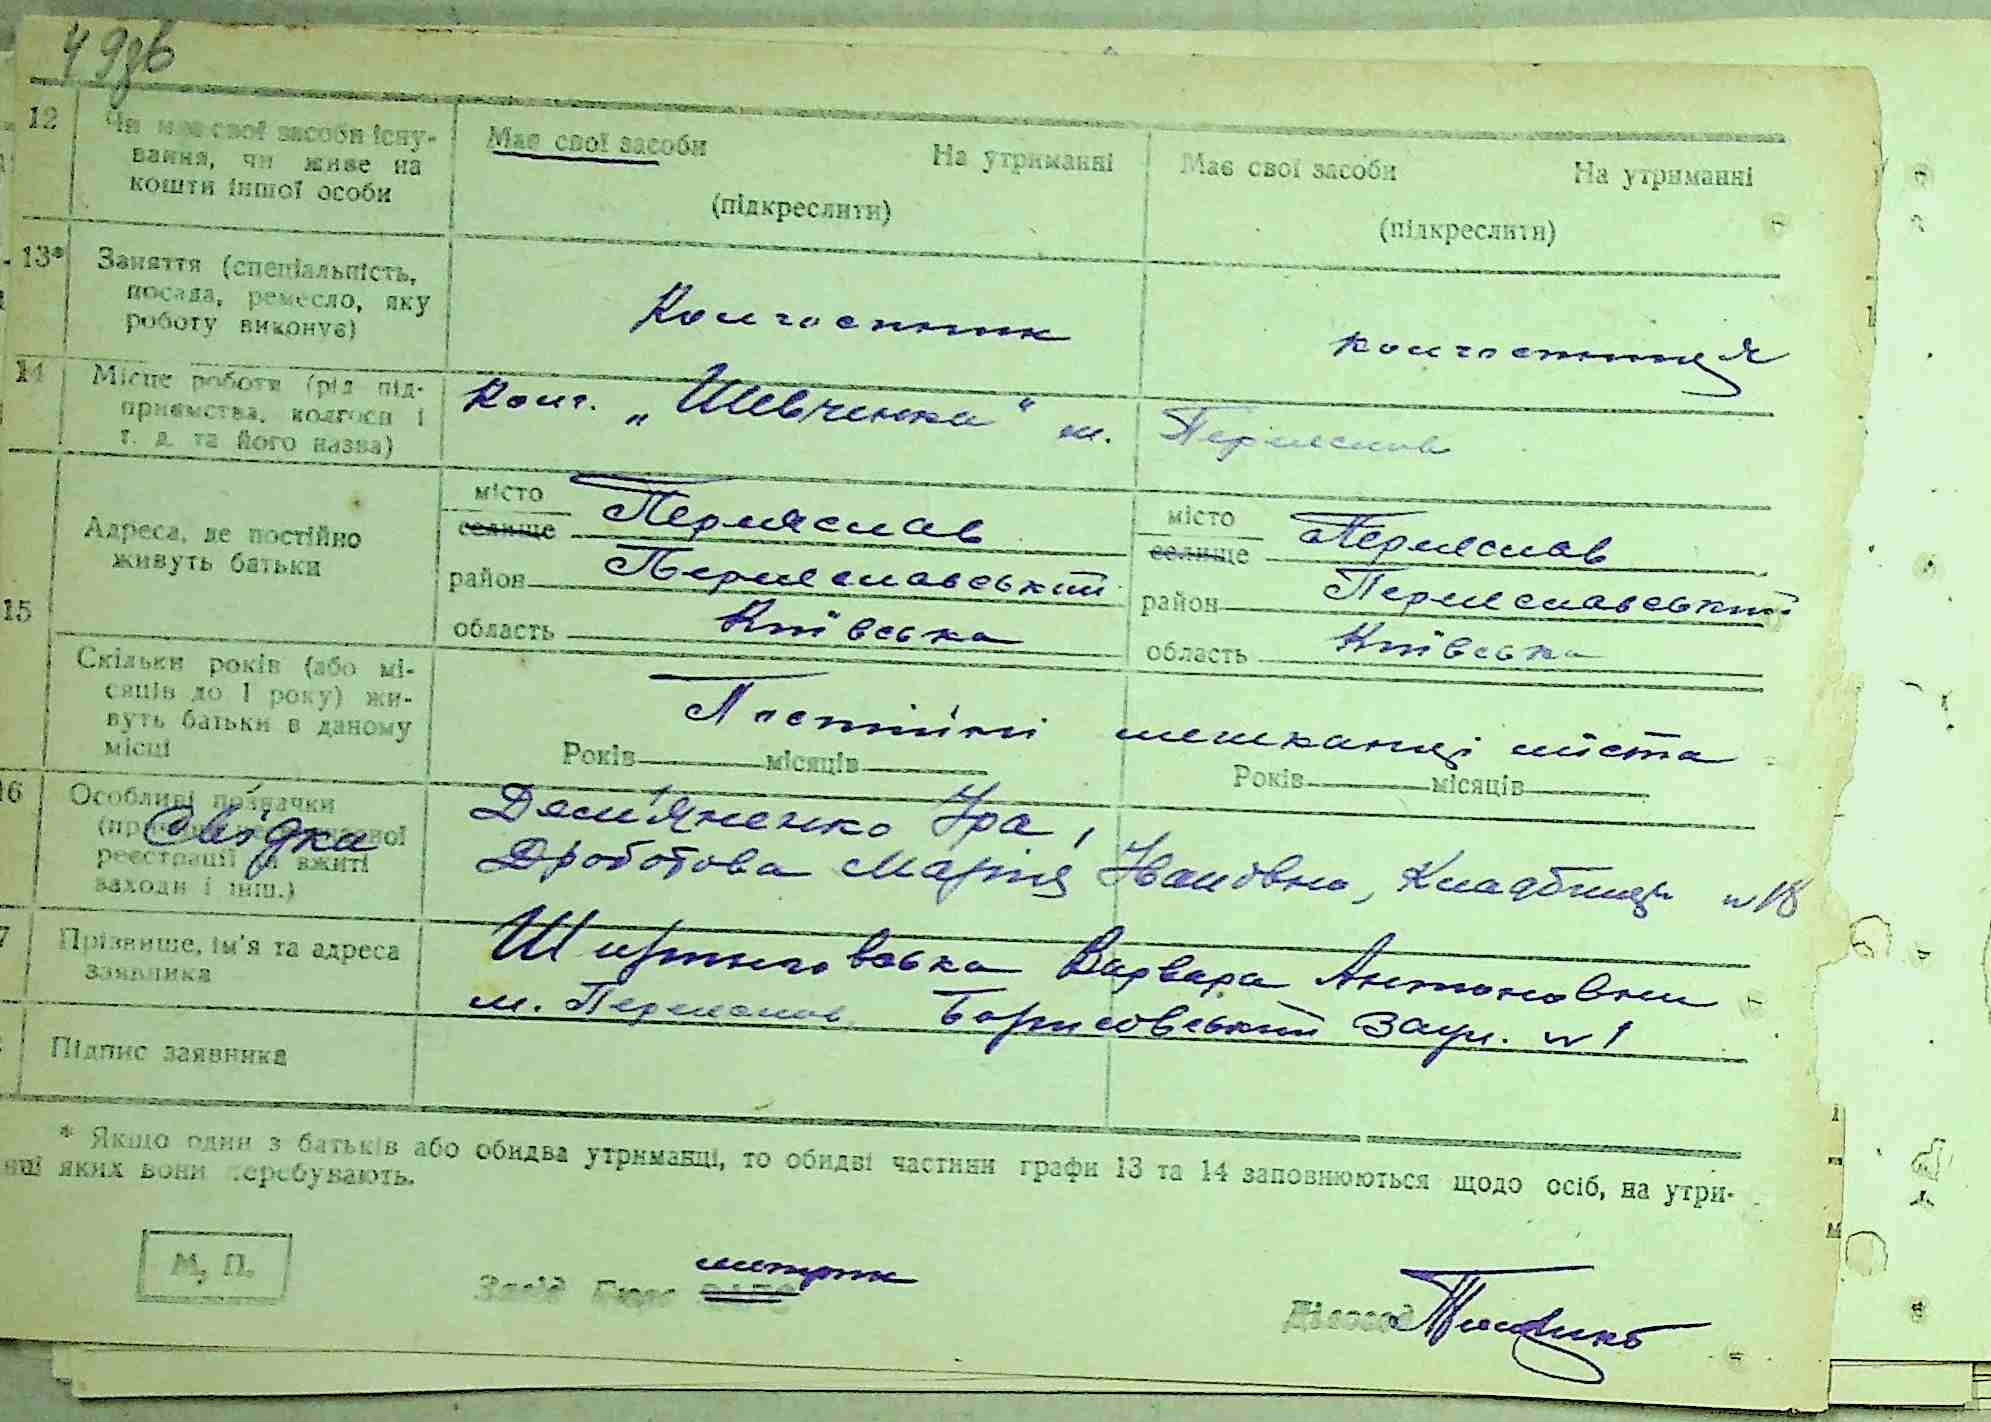 49зв
12 Чи має свої засоби існу-
вання, чи живе на
кошти іншої особи
Має свої засоби На утриманні
(підкреслити)
Має свої засоби На утриманні
(підкреслити)
13* Заняття (спеціальність,
посада, ремесло, яку
роботу виконує)
Колгоспник
колгоспниця
14 Місце роботи (рід під-
приємства, колгосп і
т. д. та його назва)
Колг. „Шевченка" м. Переяслав
15 Адреса, де постійно
живуть батьки
місто
селище Переяслав
район Переяславський
область Київська
місто
селище Переяслав
район Переяславський
область Київська
Скільки років (або мі-
сяців до 1 року) жи-
вуть батьки в даному
місці
Постійні мешканці міста
Років місяців
Років місяців
16 Особливі позначки
реєстрації та вжиті
заходи і інш.)
Свідки
Дем'яненко Іра,
Дроботова Марія Іванівна, №18
17 Прізвище, ім'я та адреса
заявника
Варвара Антоновна
м. Переяслав, Борисовський Заул. №1
Підпис заявника
* Якщо один з батьків або обидва утриманці, то обидві частини графи 13 та 14 заповнюються щодо осіб, на утри-
нні яких вони перебувають.
М. П.
метрик
Завід Бюро ЗАГС
Діловод